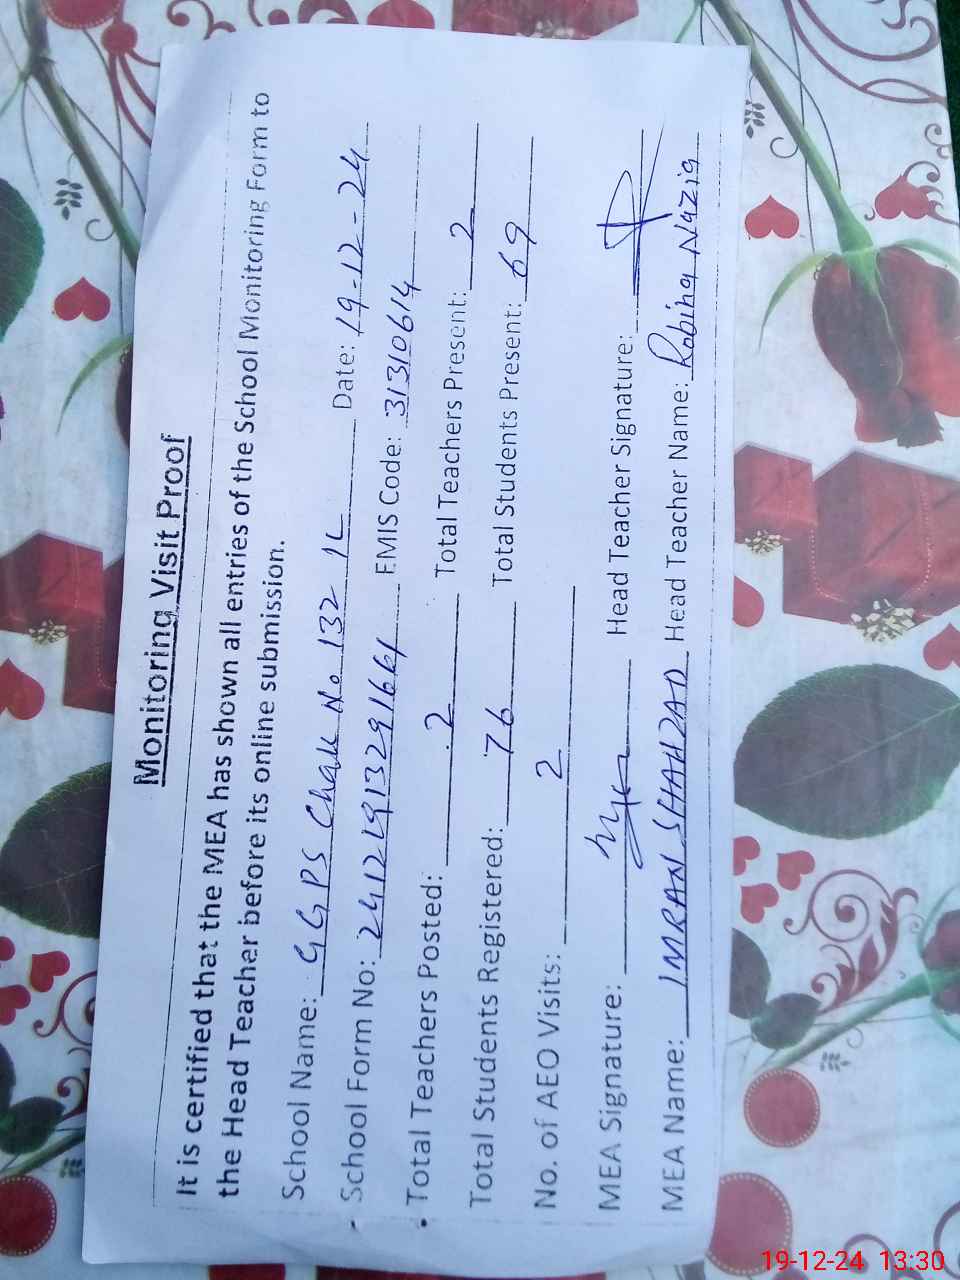 Monitoring Visit Proof
It is certified that the MEA has shown all entries of the School Monitoring Form to
the Head Teacher before its online submission.
School Name: GGPS Chak No 132 1L Date: 19-12-24
School Form No: EMIS Code: 31310614
Total Teachers Posted: 2 Total Teachers Present: 2
Total Students Registered: 76 Total Students Present: 69
No. of AEO Visits: 2
MEA Signature: Head Teacher Signature:
MEA Name: IMRAN SHAHZAD Head Teacher Name: Robina Nazia
19-12-24 13:30